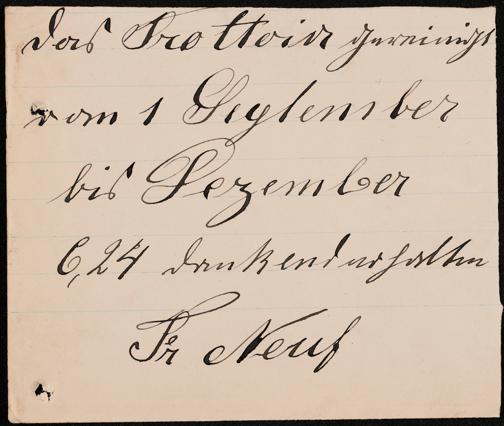 das Trottoir gereinigt
vom 1 September
bis Dezember
6,24 dankend erhalten
Fr Neuf